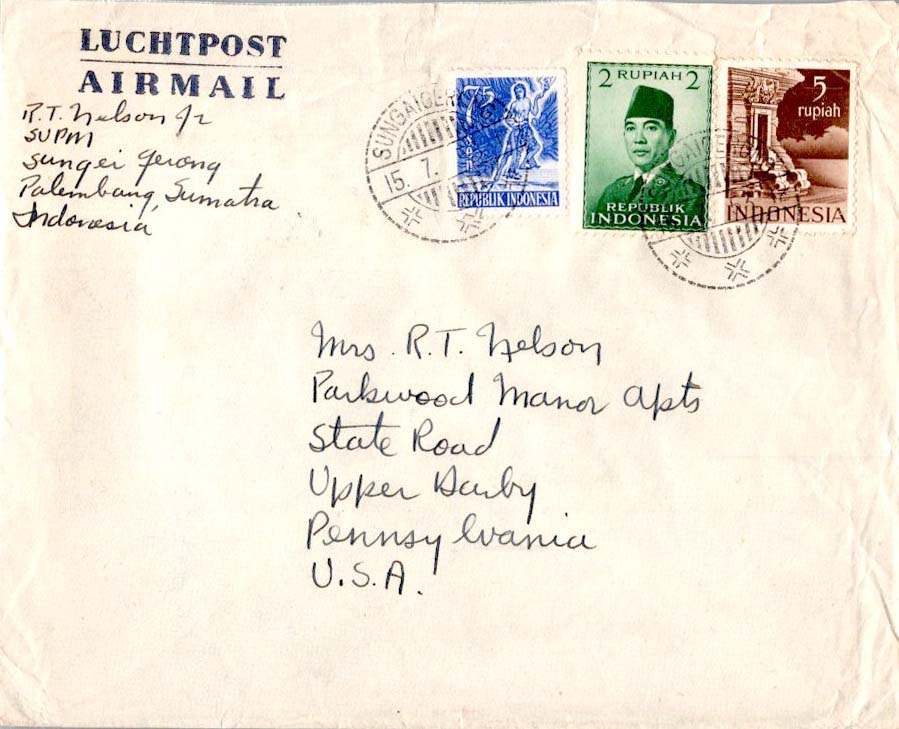 LUCHTPOST
AIRMAIL
R.T. Nelson Jr
SUPM
Sungei Gerong
Palembang, Sumatra
Indonesia
SUNGAIGE
15. 7.
75
SEN
REPUBLIK INDONESIA
2 RUPIAH 2
REPUBLIK
INDONESIA
5
rupiah
INDONESIA
Mrs. R.T. Nelson
Parkwood Manor Apts
State Road
Upper Darby
Pennsylvania
U.S.A.